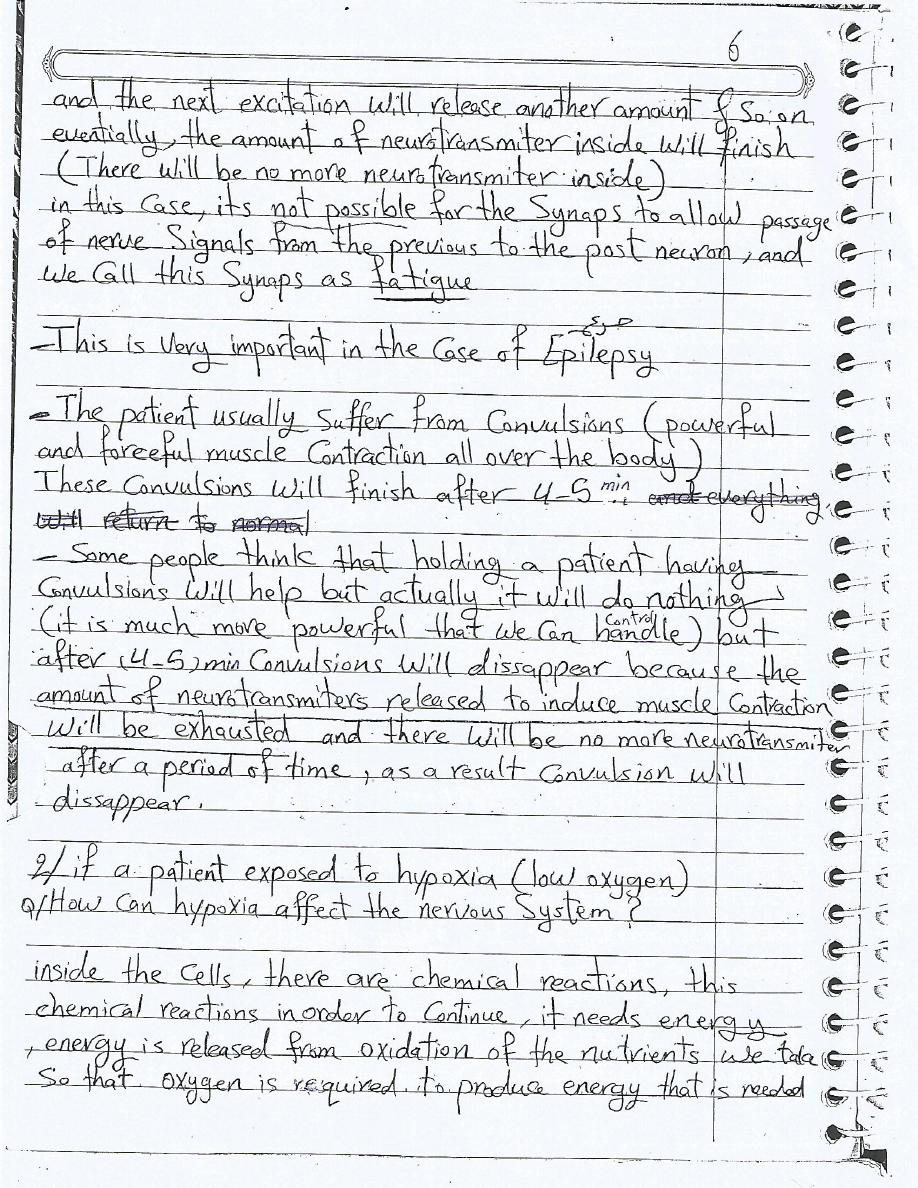 6
and the next excitation will release another amount & So on
eventially, the amount of neurotransmiter inside will finish
(There will be no more neurotransmiter inside)
in this Case, its not possible for the Synaps to allow passage
of nerve Signals from the previous to the post neuron, and
we Call this Synaps as fatigue
صرع
- This is Very important in the Case of Epilepsy
- The patient usually Suffer from Convulsions (powerful
and forceful muscle Contraction all over the body)
These Convulsions will finish after 4-5 min and everything
will return to normal
- Some people think that holding a patient having
Convulsions will help but actually it will do nothing
(it is much more powerful that we Can control handle) but
after (4-5) min Convulsions will dissappear because the
amount of neurotransmiters released to induce muscle Contraction
will be exhausted and there will be no more neurotransmiter
after a period of time, as a result Convulsion will
dissappear.
2/ if a patient exposed to hypoxia (low oxygen)
Q/ How Can hypoxia affect the nervous System?
inside the Cells, there are chemical reactions, this
chemical reactions inorder to Continue, it needs energy
, energy is released from oxidation of the nutrients we
So that oxygen is required to produce energy that is needed